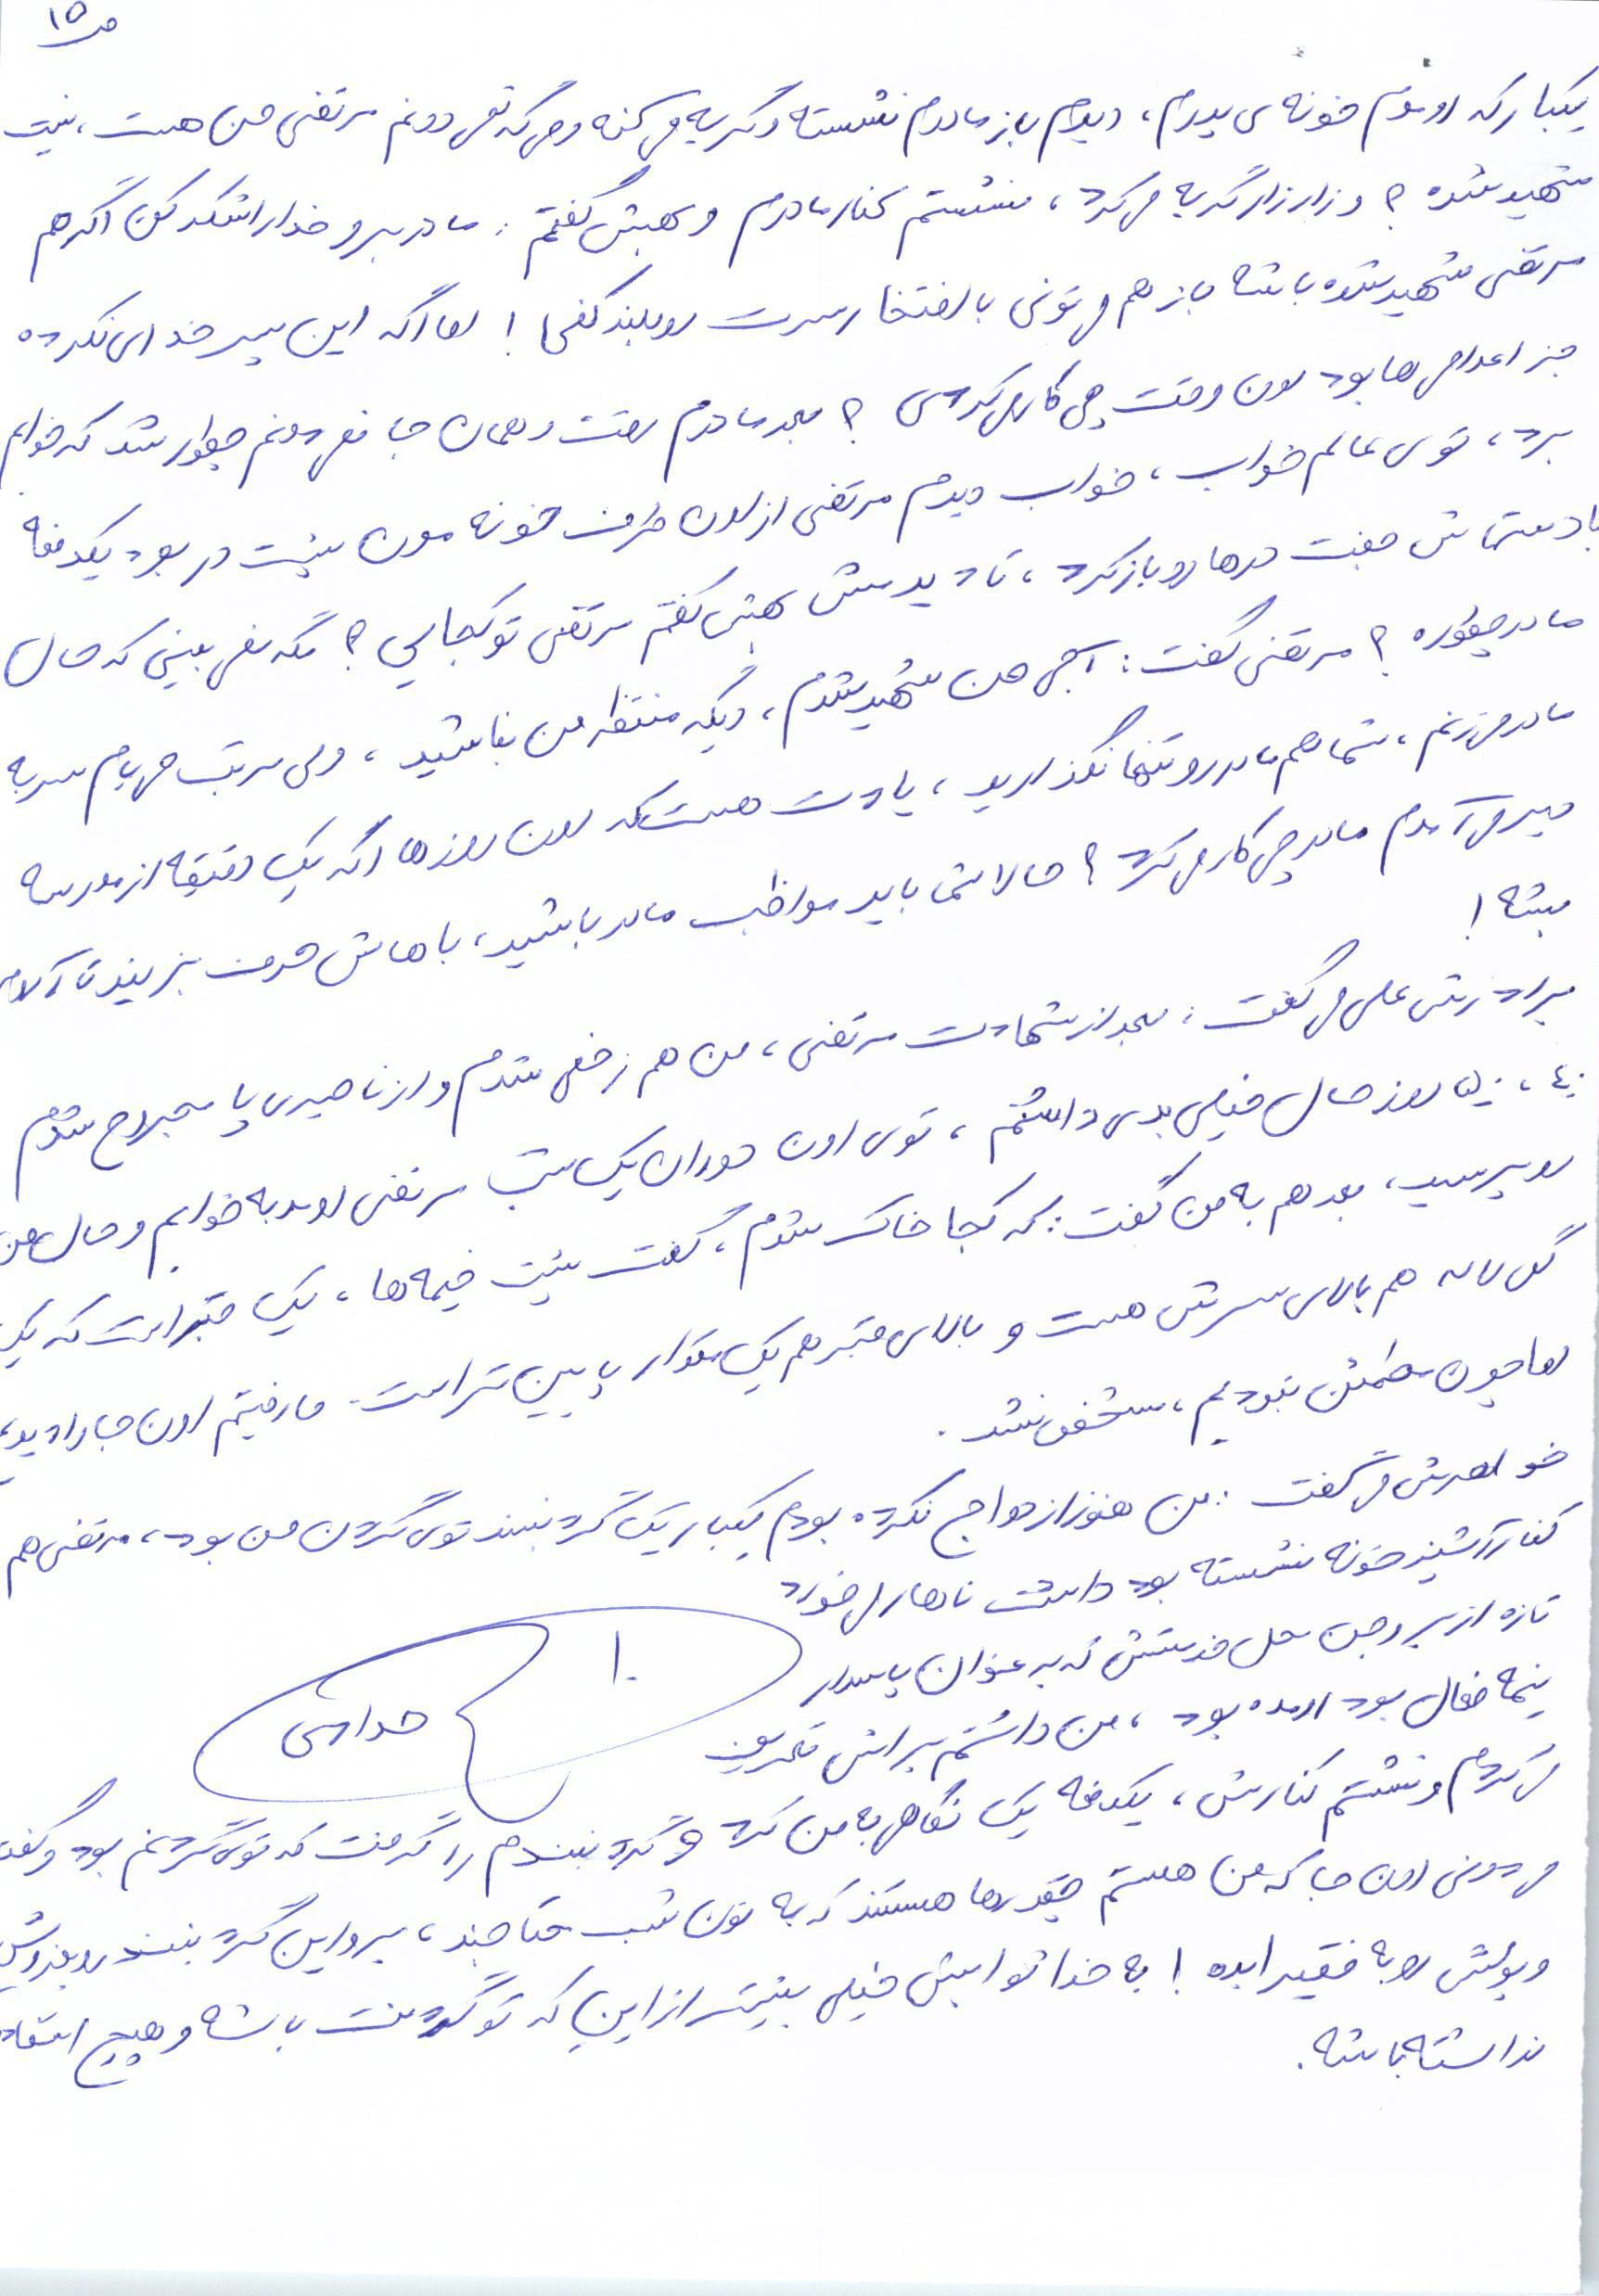 ص ۱۵
یکبار که اومدم خونه ی پدرم، دیدم باز مادرم نشسته و گریه می کنه و می گه نمی دونم مرتضی من هست، نیست
شهید شده ؟ و زار زار گریه می کرد، نشستم کنار مادرم و بهش گفتم : مادر برو خدا را شکر کن اگر هم
مرتضی شهید شده باشه باز هم می تونی با افتخار سرت رو بلند کنی ! اما اگه این پسر خدای نکرده
جز اعدامی ها بود اون وقت چی کار می کردی ؟ بعد مادرم رفت و همان جا نمی دونم چطور شد که خوابم
برد، توی عالم خواب، خواب دیدم مرتضی از اون طرف خونه مون پشت در بود یکدفعه
با دستهاش جفت درها رو باز کرد، تا دیدمش بهش گفتم مرتضی تو کجایی ؟ مگه نمی بینی که حال
مادر چطوره ؟ مرتضی گفت : آبجی من شهید شدم، دیگه منتظر من نباشید، ولی مرتب می یام سر به
مادر می زنم، شما هم مادر رو تنها نگذارید، یادت هست که اون روزها اگه یک دقیقه از مدرسه
دیر می آمدم مادر چی کار می کرد ؟ حالا شما باید مواظب مادر باشید، باهاش حرف بزنید تا آرام
بشه !
برادرش علی می گفت : بعد از شهادت مرتضی، من هم زخمی شدم و از ناحیه ی پا مجروح شدم
۴۰، ۵۰ روز حال خیلی بدی داشتم، توی اون دوران یک شب مرتضی اومد به خوابم و حال من
رو پرسید، بعد هم به من گفت : که کجا خاک شدم، گفت پشت خیمه ها، یک قبر است که یک
گل لاله هم بالای سرش هست و بالای قبر هم یک مقدار پایین تر است. ما رفتیم اون جا را دیدیم
اما چون مطمئن نبودیم، مشخص نشد.
خواهرش می گفت : من هنوز ازدواج نکرده بودم یکبار یک گردنبند توی گردن من بود، مرتضی هم
کنار آشپزخونه نشسته بود داشت ناهار می خورد
تازه از بیرون محل خدمتش که به عنوان پاسدار
نیمه فعال بود اومده بود، من داشتم براش تعریف
۱۰
خدادادی
می کردم و نشستم کنارش، یکدفعه یک نگاهی به من کرد و گردنبندم را گرفت که توی گردنم بود و گفت
می دونی اون جا که من هستم چقدرها هستند که به نون شب محتاجند، برو این گردنبند رو بفروش
و پولش رو به فقیرا بده ! به خدا ثوابش خیلی بیشتر از اینِ که تو گردنت باشه و هیچ استفاده
نداشته باشه.